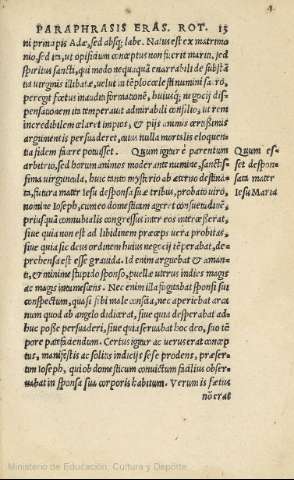 PARAPHRASIS ERAS. ROT. 13
ni principis Adæ, sed absq; labe. Natus est ex matrimo
nio, sed ita, ut opificium conceptus non fuerit mariti, sed
spiritus sancti, qui modo nequaquã enarrabili de substã
tia virginis illibatæ, uelut in tẽplo cœlesti numini sacro,
peregit fœtus inauditi formationẽ, huiusq; negocij dis
pensationem ita temperauit admirabili consilio, ut rem
incredibilem
argumentis persuaderet, cui nulla mortalis eloquen
tia fidem facere potuisset. Quum igitur è parentum
Quum es=
arbitrio, sed horum animos moderante numine, sanctis=
set despon
sima uirguncula, huic tanto mysterio ab æterno destina=
sata mater
ta, futura mater Iesu desponsa suæ tribus, probato uiro,
Iesu Maria
nomine Ioseph, cum eo domesticam ageret consuetudinẽ,
priusquã connubialis congressus inter eos intercessisset,
siue quia non est ad libidinem præceps uera probitas,
siue quia sic deus ordinem huius negocij tẽperabat, de=
prehensa est esse grauida. Id enim arguebat & aman=
ti, & minime stupido sponso, puellæ uterus indies magis
ac magis intumescens. Nec enim illa fugitabat sponsi sui
conspectum, quasi sibi male conscia, nec aperiebat arca
num quod ab angelo didicerat, siue quia desperabat ad=
huc posse persuaderi, siue quia seruabat hoc deo, suo tẽ
pore patefaciendum. Certus igitur ac uerus erat concep
tus, manifestis ac solitis indicijs sese prodens, præser
tim Ioseph, qui ob domesticum conuictum facilius obser
uabat in sponsa sua corporis habitum. Verum is fœtus
nõ erat
Ministerio de Educación, Cultura y Deporte